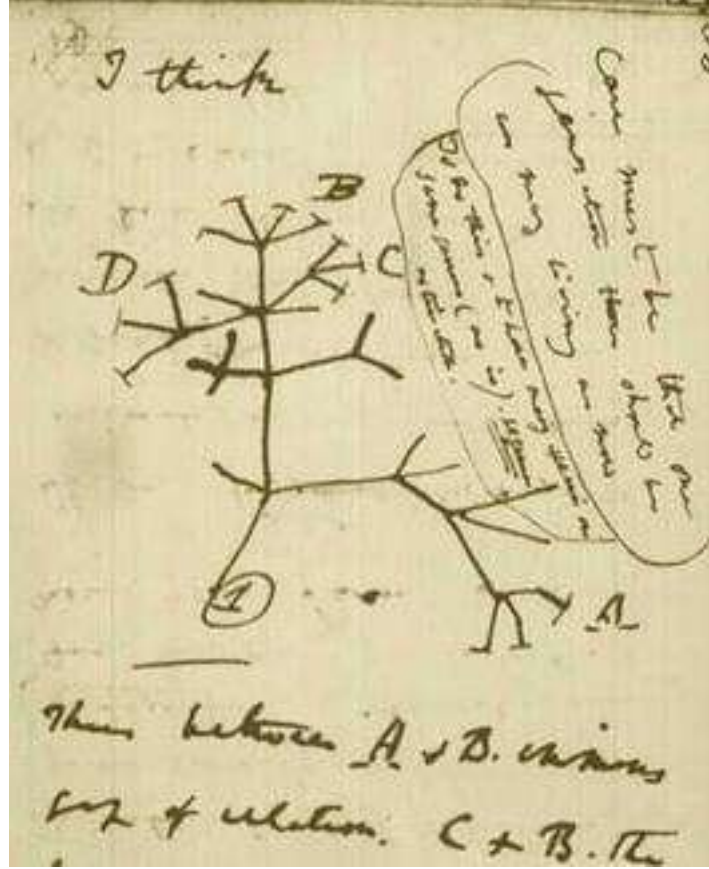 I think
B
D
C
A
1
Case must be that one
generation then should be
as many living as now
To do this & to have many species in
same genus (as is). requires
extinction.
Thus between A & B. immens
gap of relation. C & B. the